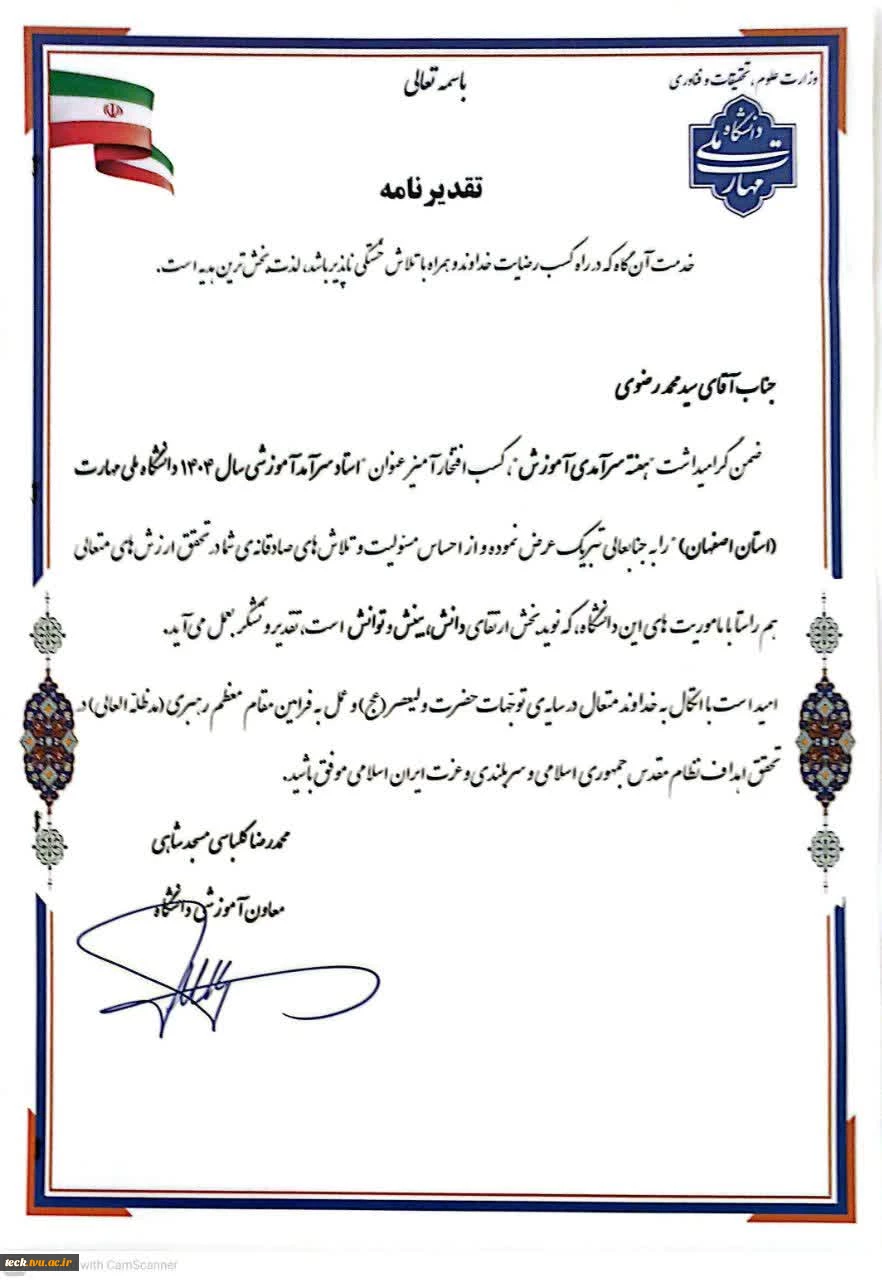 باسمه تعالی
وزارت علوم، تحقیقات و فناوری
دانشگاه
ملی
مهارت
تقدیرنامه
خدمت آن گاه که در راه کسب رضایت خداوند و همراه با تلاش خستگی ناپذیر باشد، لذت بخش ترین هدیه است.
جناب آقای سید محمد رضوی
ضمن گرامیداشت "هفته سرآمدی آموزش"، کسب افتخارآمیز عنوان "استاد سرآمد آموزشی سال ۱۴۰۴ دانشگاه ملی مهارت
(استان اصفهان)" را به جنابعالی تبریک عرض نموده و از احساس مسئولیت و تلاش های صادقانه ی شما در تحقق ارزش های متعالی
هم راستا با ماموریت های این دانشگاه، که نویدبخش ارتقای دانش، بینش و توانش است، تقدیر و تشکر بعمل می آید.
امید است با اتکال به خداوند متعال در سایه ی توجهات حضرت ولیعصر (عج) و عمل به فرامین مقام معظم رهبری (مدظله العالی) در
تحقق اهداف نظام مقدس جمهوری اسلامی و سربلندی و عزت ایران اسلامی موفق باشید.
محمدرضا کلباسی مسجدشاهی
معاون آموزشی دانشگاه
tech.tvu.ac.ir
with CamScanner